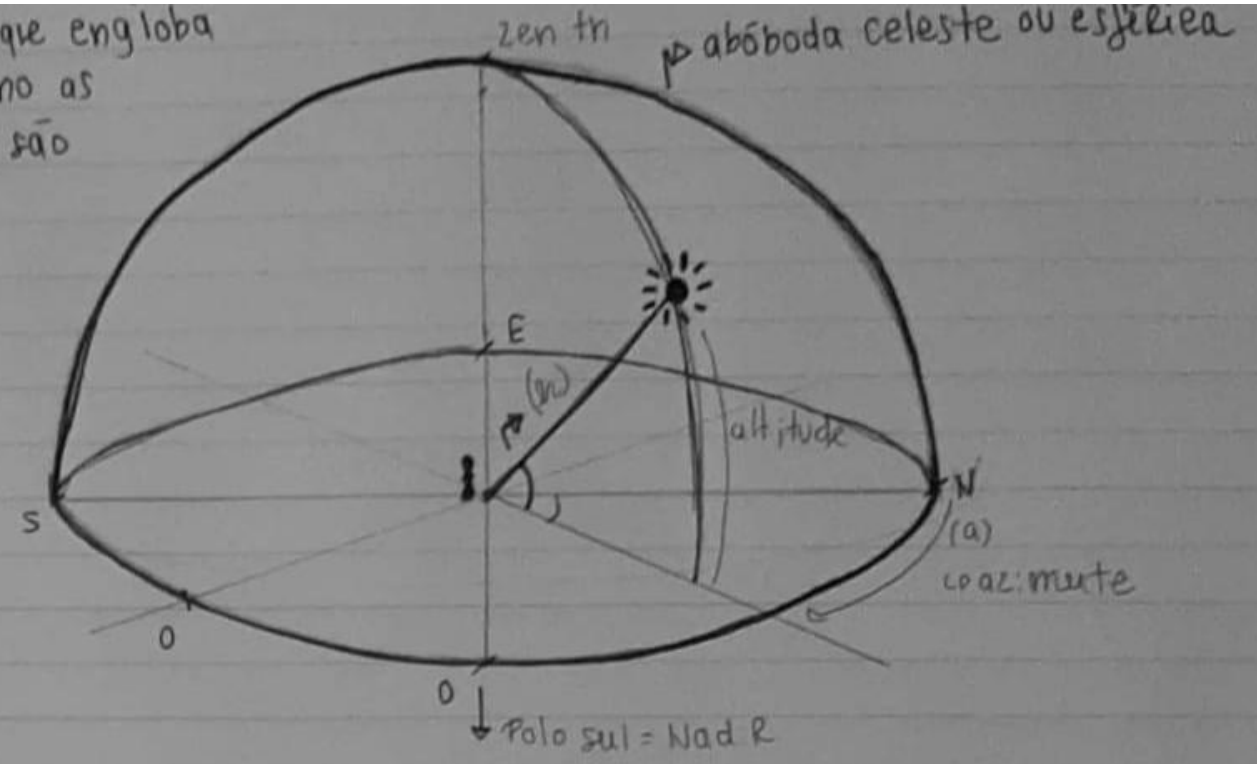 que engloba
no as
são
zen tn
abóboda celeste ou esférica
E
(h)
altitude
S
N
(a)
azimute
O
O
Polo sul = Nad R